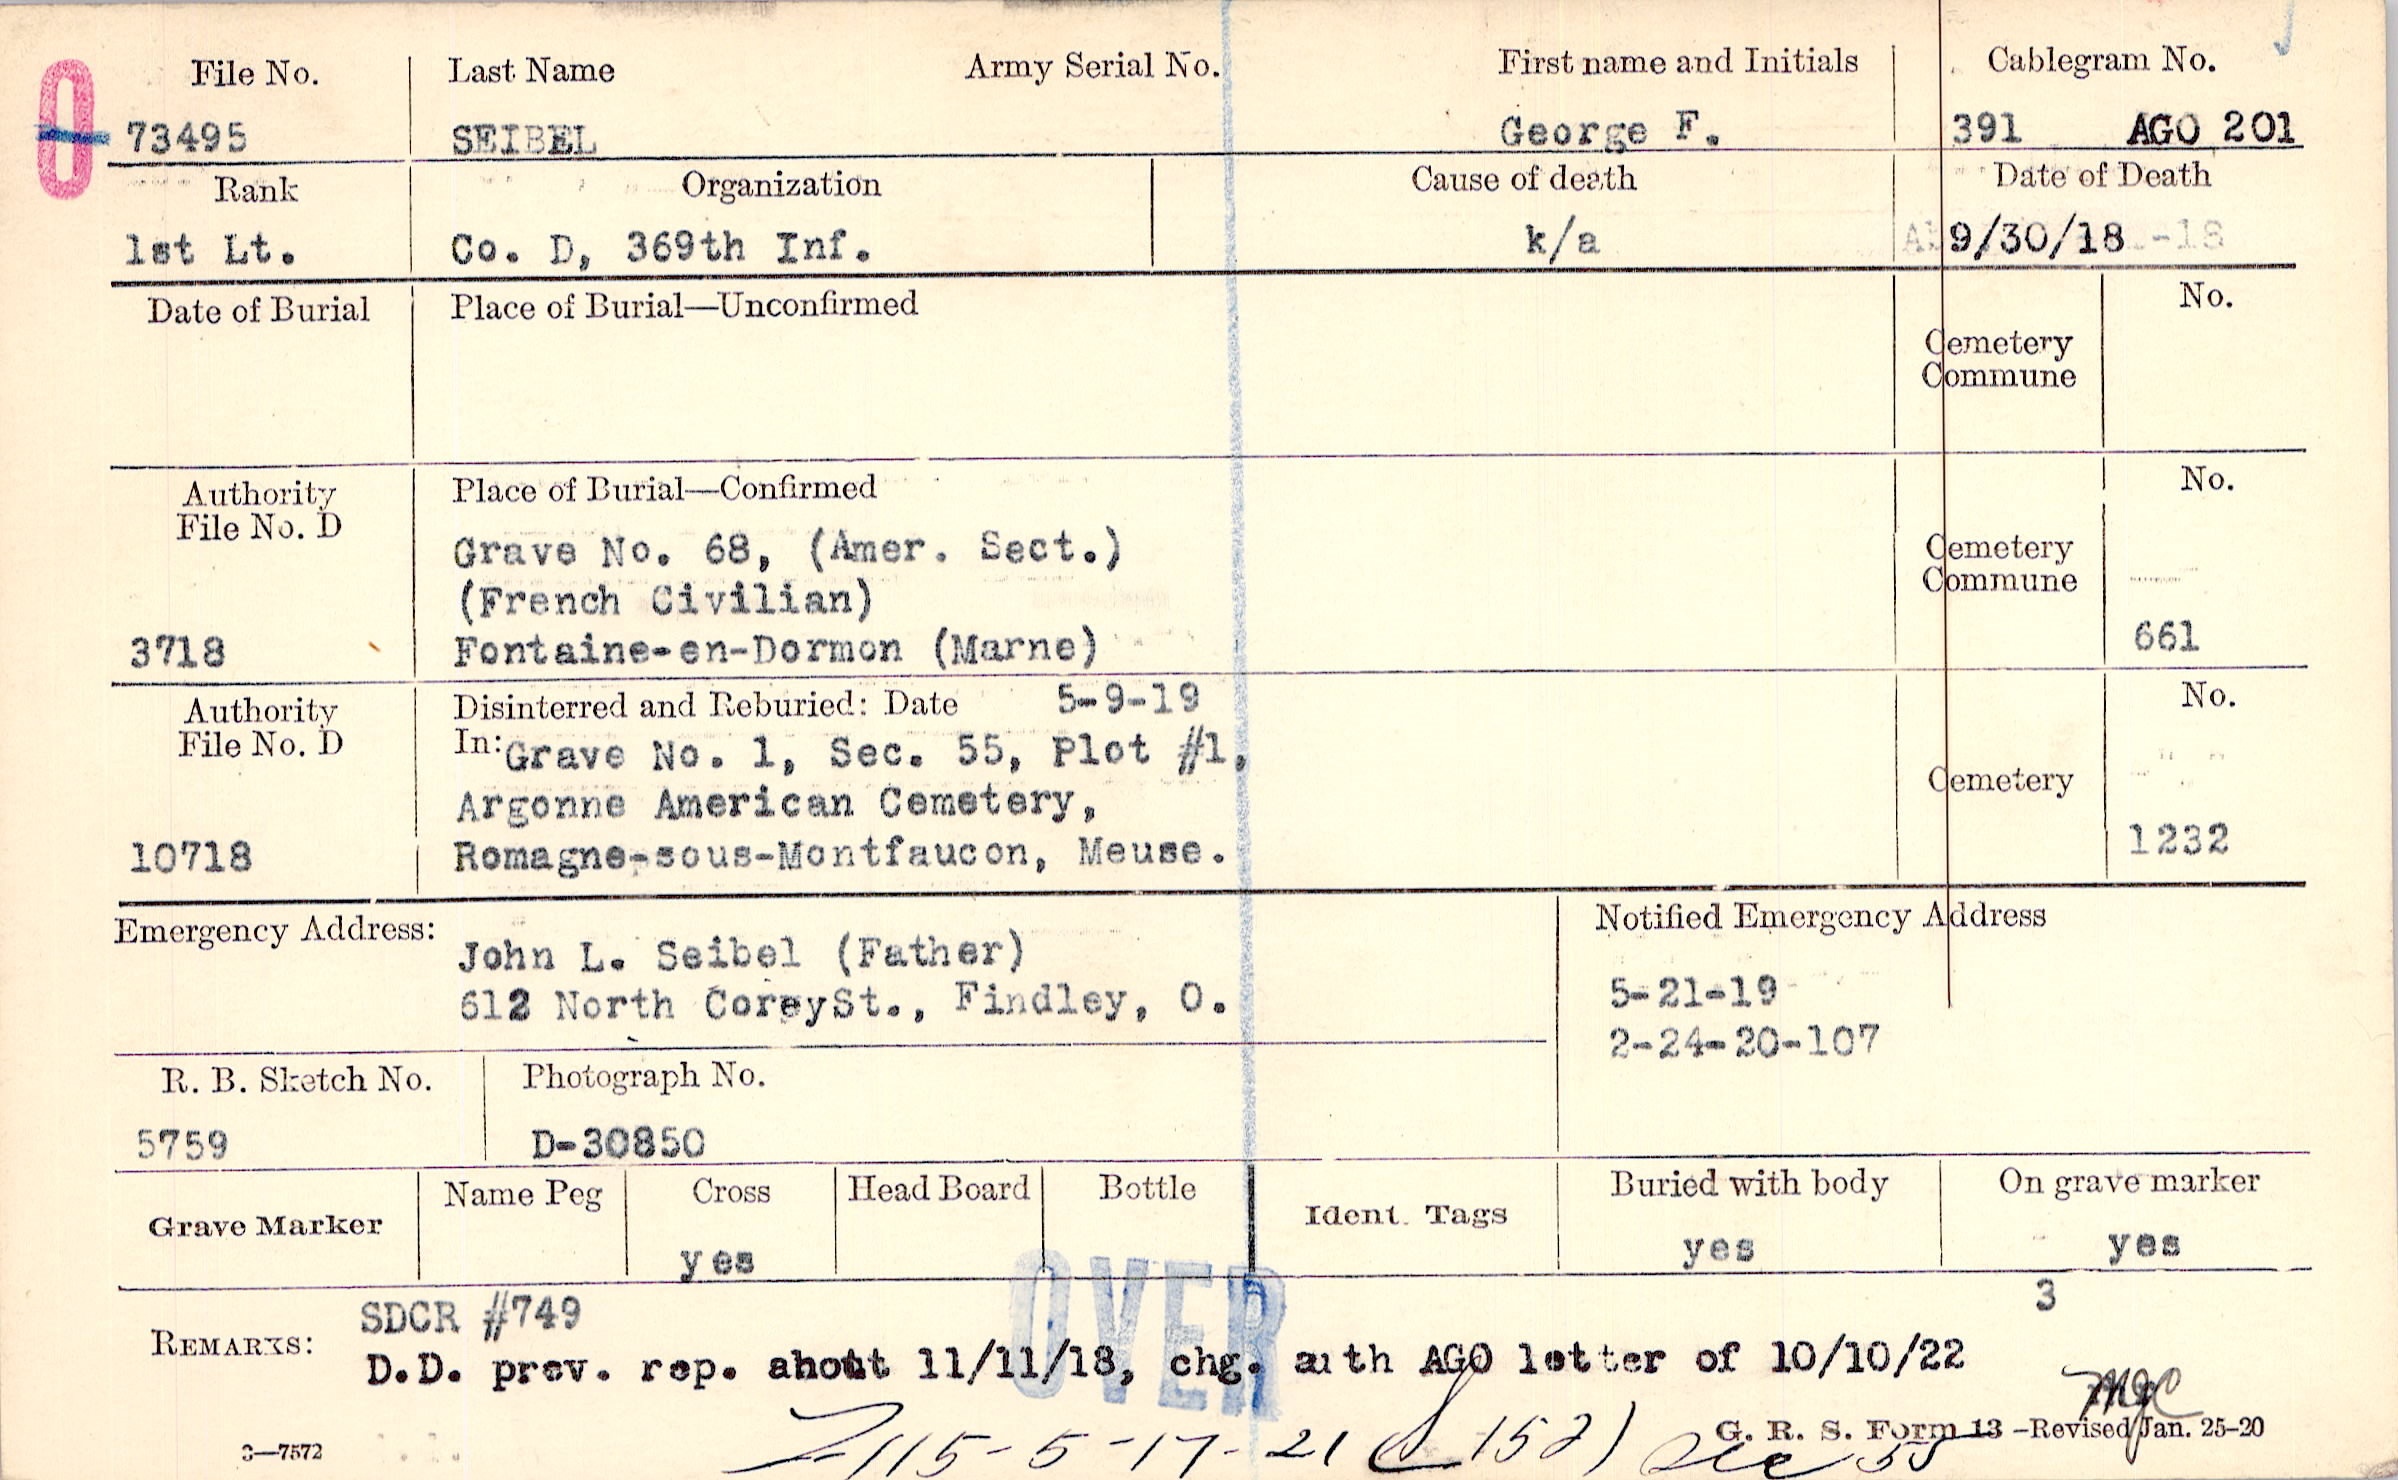 File No. Last Name Army Serial No. First name and Initials Cablegram No.
0 73495 SEIBEL George F. 391 AGO 201
Rank Organization Cause of death Date of Death
1st Lt. Co. D, 369th Inf. k/a 9/30/18 -18
Date of Burial Place of Burial—Unconfirmed No.
Cemetery
Commune
Authority Place of Burial—Confirmed No.
File No. D
Grave No. 68, (Amer. Sect.) Cemetery
(French Civilian) Commune
3718 Fontaine-en-Dormon (Marne) 661
Authority Disinterred and Reburied: Date 5-9-19 No.
File No. D In: Grave No. 1, Sec. 55, Plot #1,
Argonne American Cemetery, Cemetery
10718 Romagne-sous-Montfaucon, Meuse. 1232
Emergency Address: Notified Emergency Address
John L. Seibel (Father)
612 North CoreySt., Findley, O. 5-21-19
2-24-20-107
R. B. Sketch No. Photograph No.
5759 D-30850
Grave Marker Name Peg Cross Head Board Bottle Ident. Tags Buried with body On grave marker
yes yes yes
3
SDCR #749
OVER
REMARKS: D.D. prev. rep. about 11/11/18, chg. auth AGO letter of 10/10/22
5-17-21 152) Sec 55
3—7572 G. R. S. Form 13 -Revised Jan. 25-20